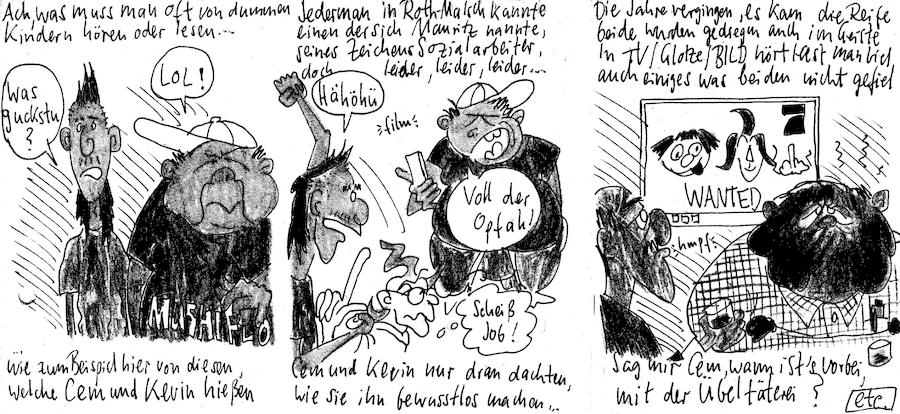 Ach, was muss man oft von dummen
Kindern hören oder lesen...
Was
guckstu
?
LOL!
MUSHIFLO
wie zum Beispiel hier von diesen,
welche Cem und Kevin hießen
Jederman in Roth-Malsch kannte
einen der sich Mauritz nannte,
seines Zeichens Sozialarbeiter,
doch leider, leider, leider...
Hähöhü
film
Voll der
Opfah!
Scheiß
Job!
Cem und Kevin nur dran dachten,
wie sie ihn bewusstlos machen...
Die Jahre vergingen, es kam die Reife
beide wurden gediegen auch im Geiste
In TV/Glotze/BILD hört liest man viel,
auch einiges was beiden nicht gefiel
7
WANTED
hmpf
Sag mir Cem, wann ist's vorbei,
mit der Übeltäterei?
etc.